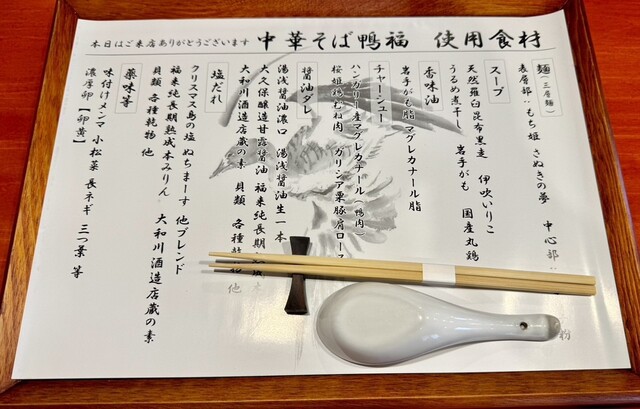 本日はご来店ありがとうございます 中華そば鴨福 使用食材
麺（三層麺）
表層部:もち姫 さぬきの夢 中心部
粉
スープ
天然羅臼昆布黒走 伊吹いりこ
うるめ煮干し 岩手がも 国産丸鶏
香味油
岩手がも脂 マグレカナール脂
チャーシュー
ハンガリー産マグレカナール（鴨肉）
桜姫鶏むね肉 ガリシア栗豚肩ロース
醤油ダレ
湯浅醤油濃口 湯浅醤油生一本
大久保醸造甘露醤油 福来純長期
大和川酒造店蔵の素 貝類 各種乾物 他
塩だれ
クリスマス島の塩 ぬちまーす 他ブレンド
福来純長期熟成本みりん 大和川酒造店蔵の素
貝類 各種乾物 他
薬味等
味付けメンマ 小松菜 長ネギ 三つ葉 等
濃厚卵【卵黄】